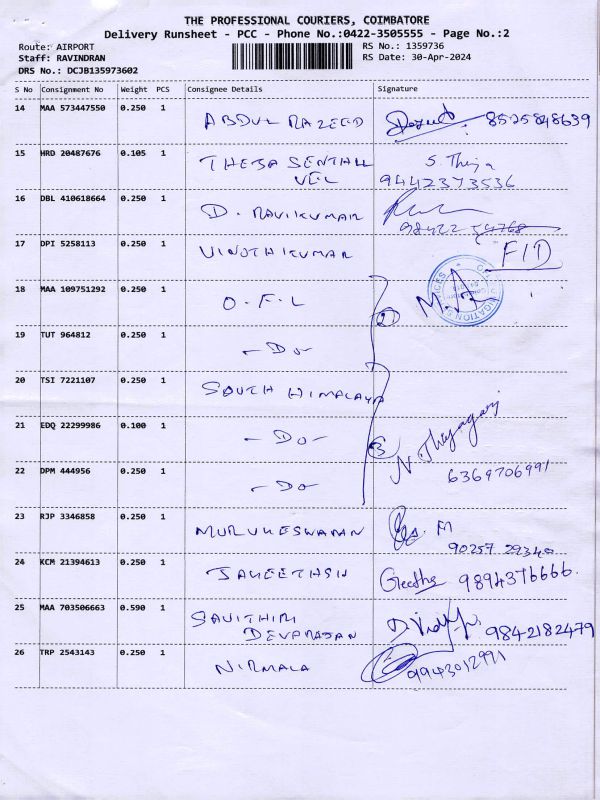 THE PROFESSIONAL COURIERS, COIMBATORE
Delivery Runsheet - PCC - Phone No.:0422-3505555 - Page No.:2
Route: AIRPORT
RS No.: 1359736
Staff: RAVINDRAN
RS Date: 30-Apr-2024
DRS No.: DCJB135973602
S No Consignment No Weight PCS Consignee Details Signature
14 MAA 573447550 0.250 1 ABDUL RAZEED 8525848639
15 HRD 20487676 0.105 1 THEJA SENTHIL S. Theja
VEL 9442373536
16 DBL 410618664 0.250 1 D. RAVIKUMAR
98422 54768
17 DPI 5258113 0.250 1 VINOTHKUMAR F/D
18 MAA 109751292 0.250 1 O.F.L 2
19 TUT 964812 0.250 1 -Do-
20 TSI 7221107 0.250 1 SOUTH HIMALAYA
21 EDQ 22299986 0.100 1 -Do- 3 N. Thiyagaraj
22 DPM 444956 0.250 1 -Do- 6369706991
23 RJP 3346858 0.250 1 MURUKESWARAN
90257 29340
24 KCM 21394613 0.250 1 Geetha 9894376666.
25 MAA 703506663 0.590 1 SAVITHIRI
DEVARAJAN 9842182479
26 TRP 2543143 0.250 1 NIRMALA 9943012991